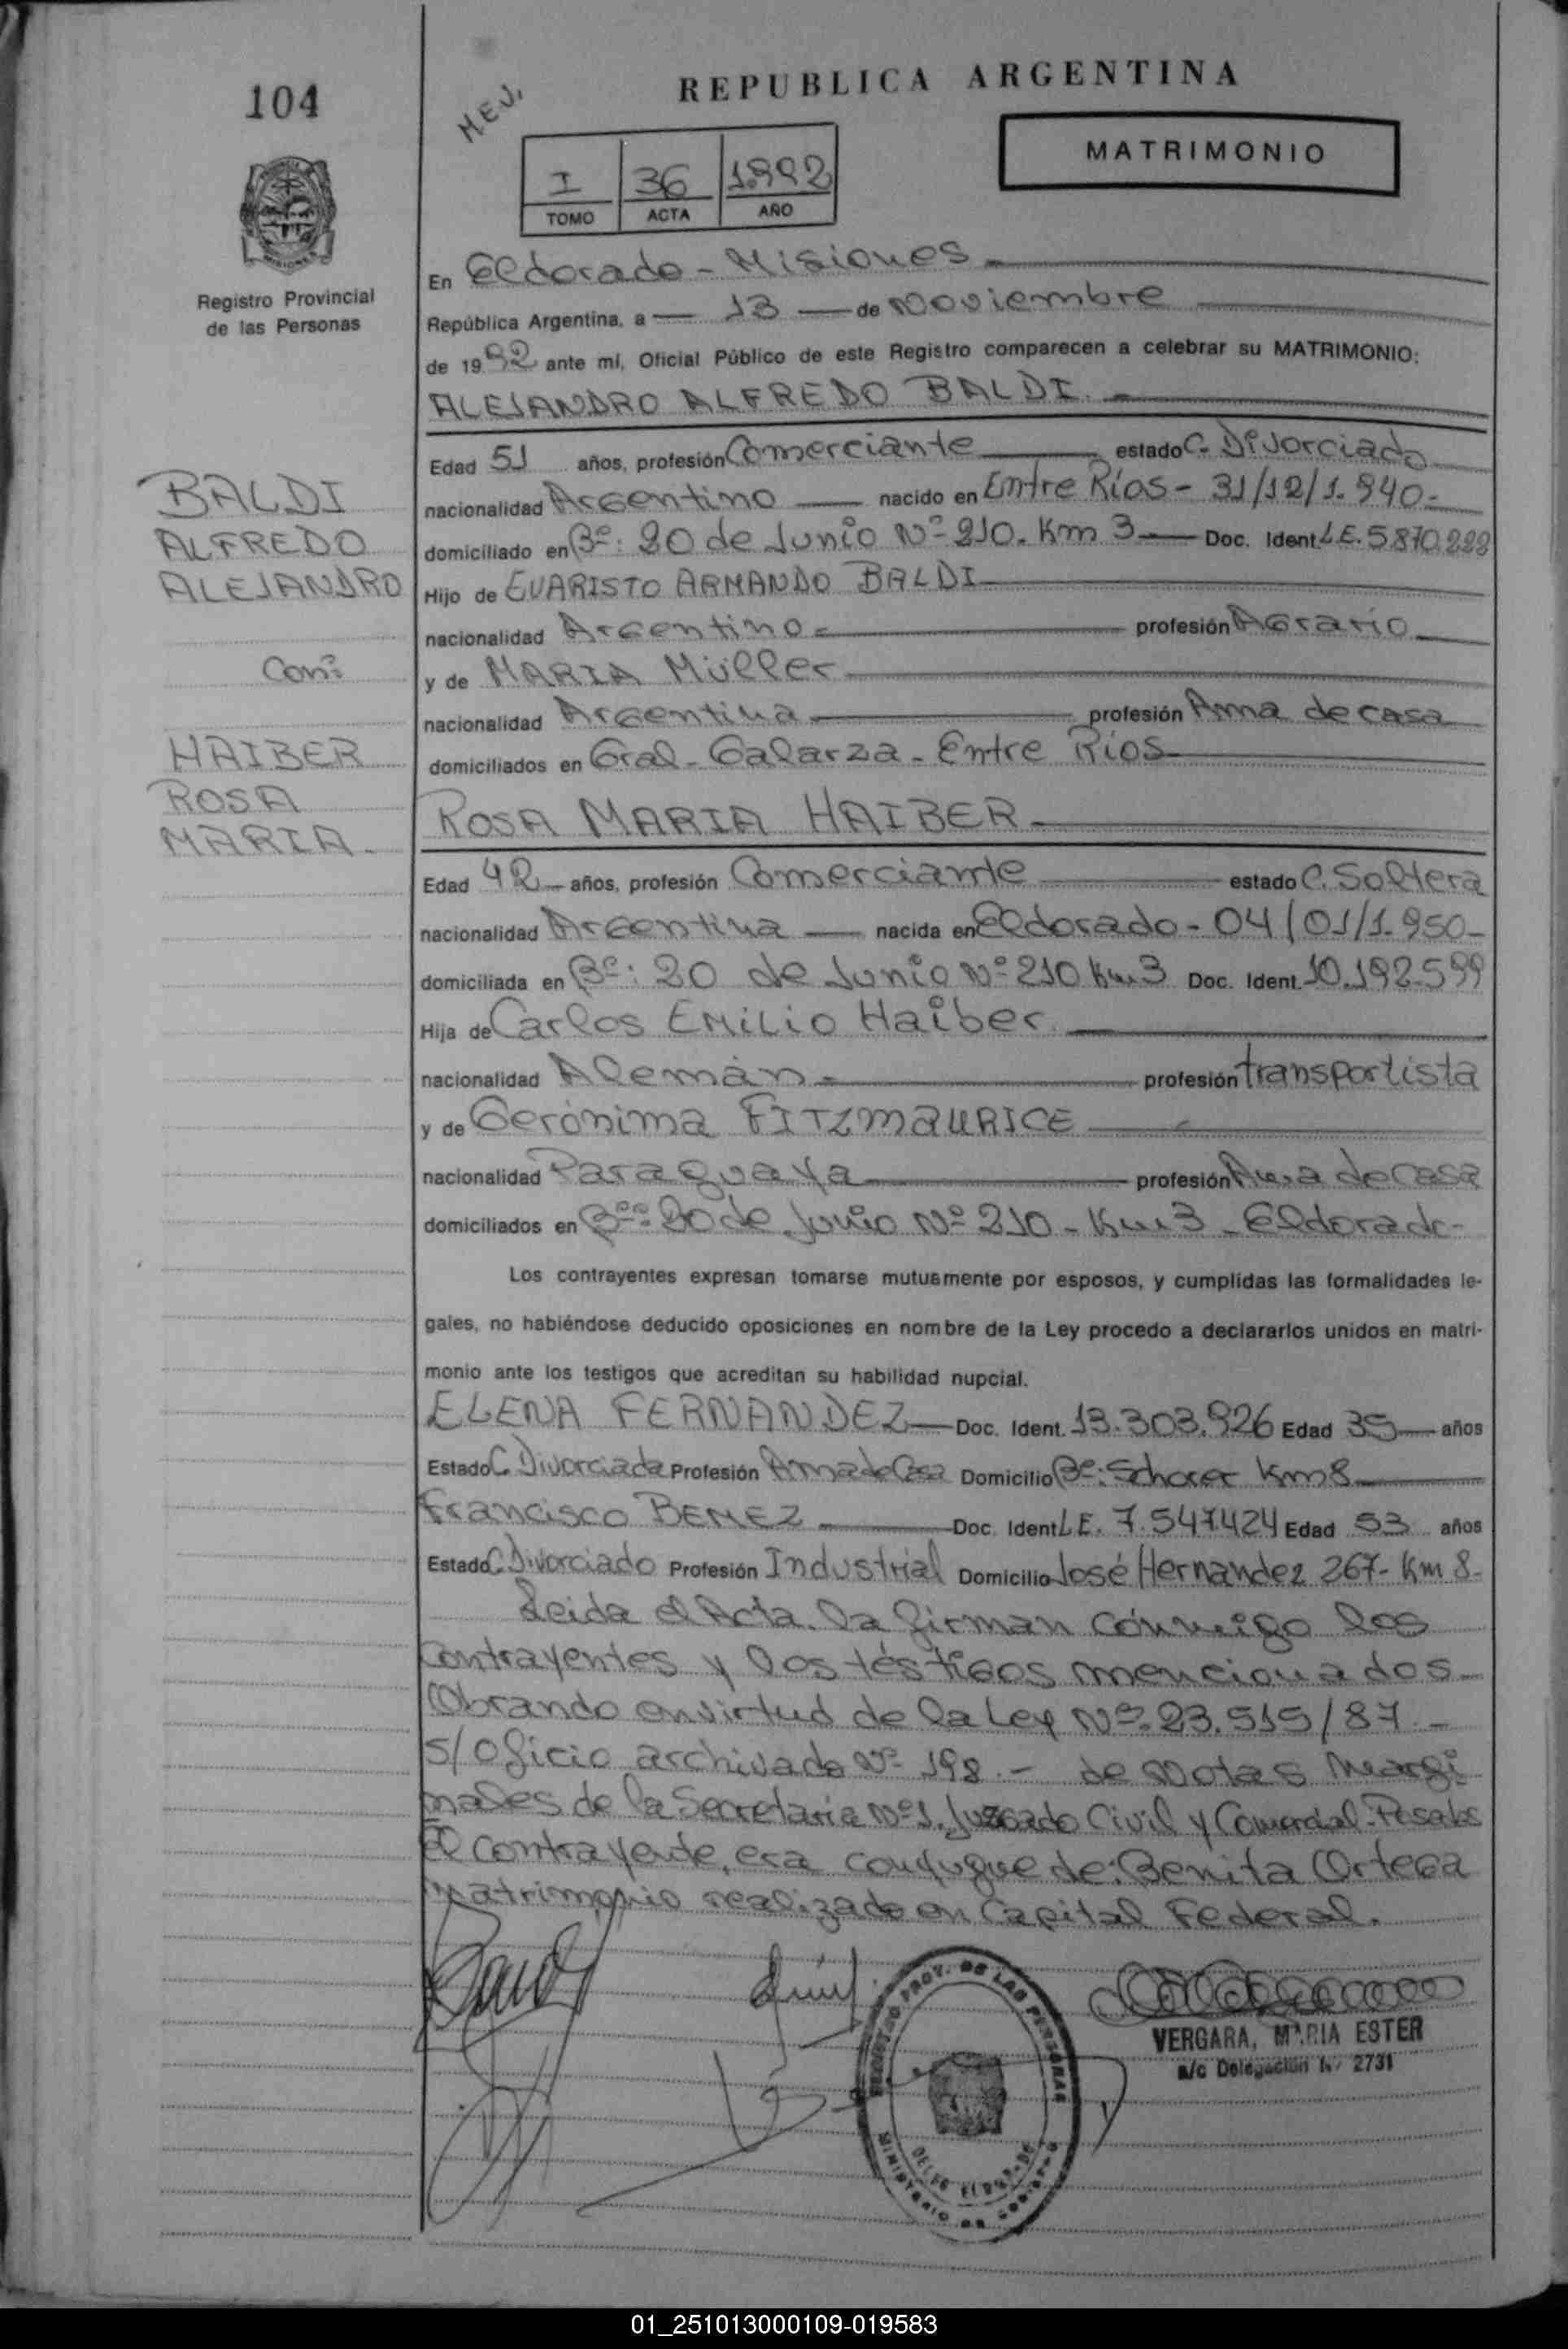 104
REPUBLICA ARGENTINA
MATRIMONIO
I 36 1.992
TOMO ACTA AÑO
MISIONES
Registro Provincial
de las Personas
En Eldorado - Misiones
República Argentina, a 13 de Noviembre
de 1992 ante mí, Oficial Público de este Registro comparecen a celebrar su MATRIMONIO:
ALEJANDRO ALFREDO BALDI.
Edad 51 años, profesión Comerciante estado C. Divorciado
nacionalidad Argentino nacido en Entre Ríos - 31/12/1.940-
domiciliado en Bº: 20 de Junio Nº 210. Km 3 Doc. Ident. L.E. 5870.228
Hijo de EVARISTO ARMANDO BALDI
nacionalidad Argentino profesión Agrario
y de MARIA Müller
nacionalidad Argentina profesión Ama de casa
domiciliados en Gral. Galarza - Entre Ríos
BALDI
ALFREDO
ALEJANDRO
Con:
HAIBER
ROSA
MARIA.
ROSA MARIA HAIBER
Edad 42 años, profesión Comerciante estado C. Soltera
nacionalidad Argentina nacida en Eldorado - 04/01/1.950-
domiciliada en Bº: 20 de Junio Nº 210 Km 3 Doc. Ident. 10.192.599
Hija de Carlos EMILIO Haiber
nacionalidad Alemán profesión transportista
y de Gerónima FITZMAURICE
nacionalidad Paraguaya profesión Ama de casa
domiciliados en Bº: 20 de Junio Nº 210 - Km 3 - Eldorado-
Los contrayentes expresan tomarse mutuamente por esposos, y cumplidas las formalidades le-
gales, no habiéndose deducido oposiciones en nombre de la Ley procedo a declararlos unidos en matri-
monio ante los testigos que acreditan su habilidad nupcial.
ELENA FERNANDEZ Doc. Ident. 13.303.926 Edad 35 años
Estado C. Divorciada Profesión Ama de Casa Domicilio Bº: Km 8
Francisco BENEZ Doc. Ident. L.E. 7.547.424 Edad 53 años
Estado C. Divorciado Profesión Industrial Domicilio José Hernández 267 - Km 8-
Leida el Acta. la firman conmigo los
contrayentes y los téstigos mencionados.-
Obrando en virtud de la Ley Nº 23.515/87.-
S/ Oficio archivado Nº 198.- de Notas Margi
nales de la Secretaria Nº 1. Juzgado Civil y Comercial - Posadas
El contrayente, era conyugue de: Benita Ortega
Matrimonio realizado en Capital Federal.
REGISTRO PROV. DE LAS PERSONAS
MINISTERIO DE GOBIERNO
VERGARA, MARIA ESTER
a/c Delegación Nº 2731
01_251013000109-019583